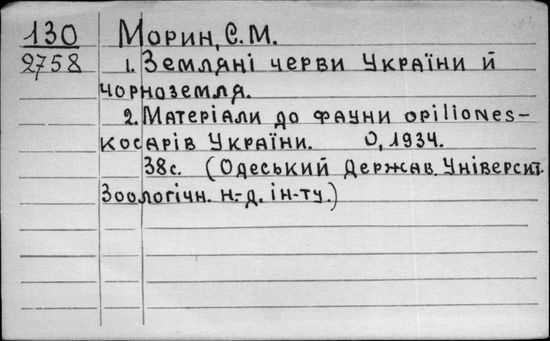 130 Морин, С.М.
2758 1. Земляні черви України й
чорноземля.
2. Матеріали до фауни opiliones-
косарів України. О, 1934.
38с. (Одеський Держав. Університ.
Зоологічн. н.-д. ін-ту.)